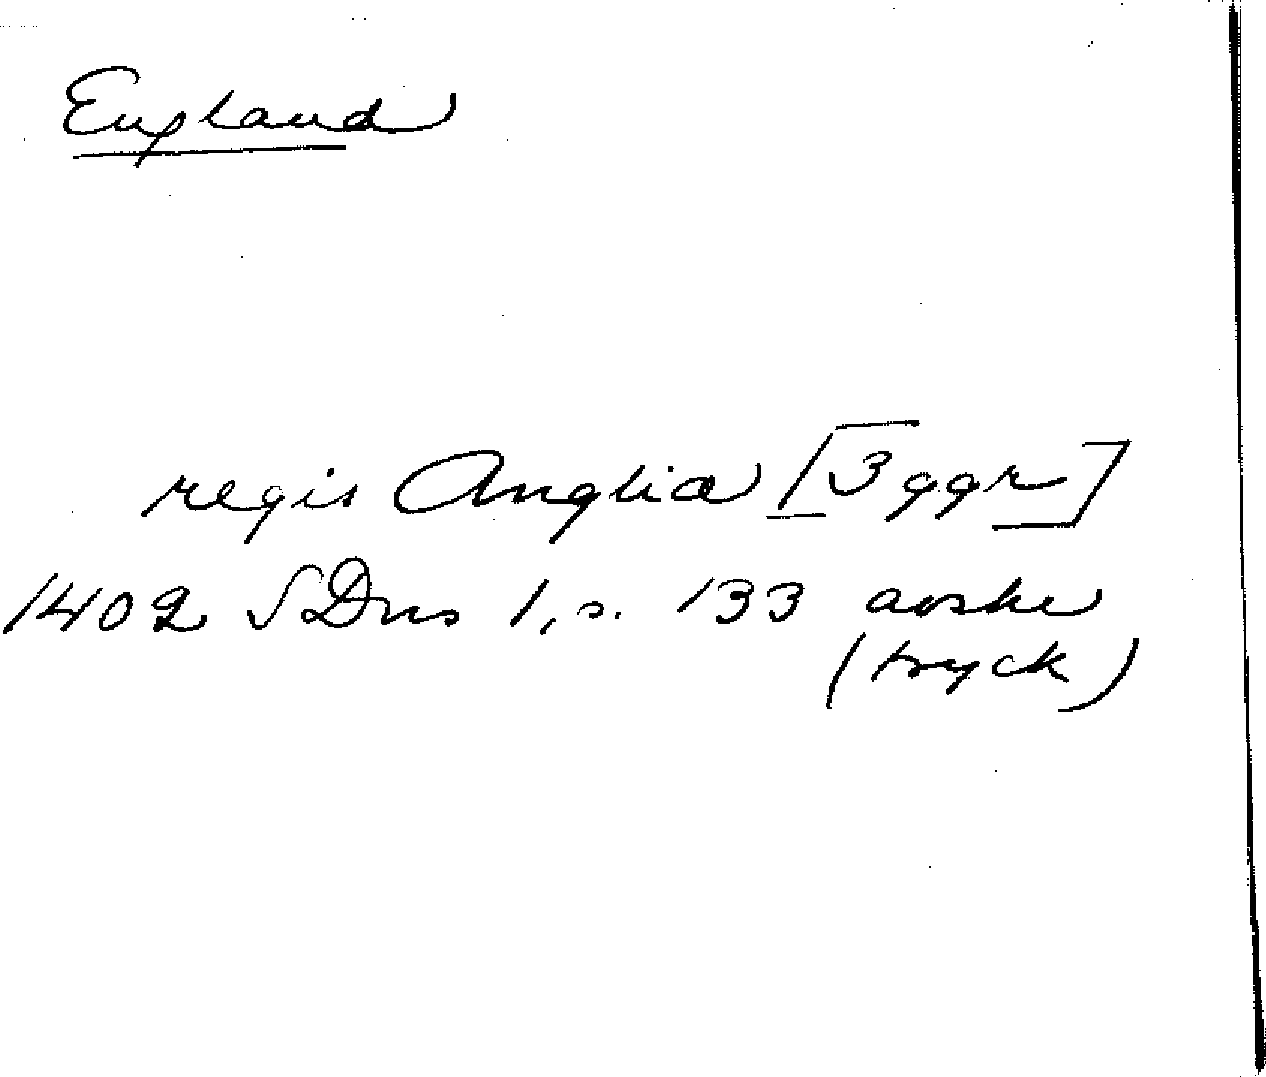 England
regis Anglia [3 ggr]
1402 SDns 1, s. 133 avskr
(tryck)